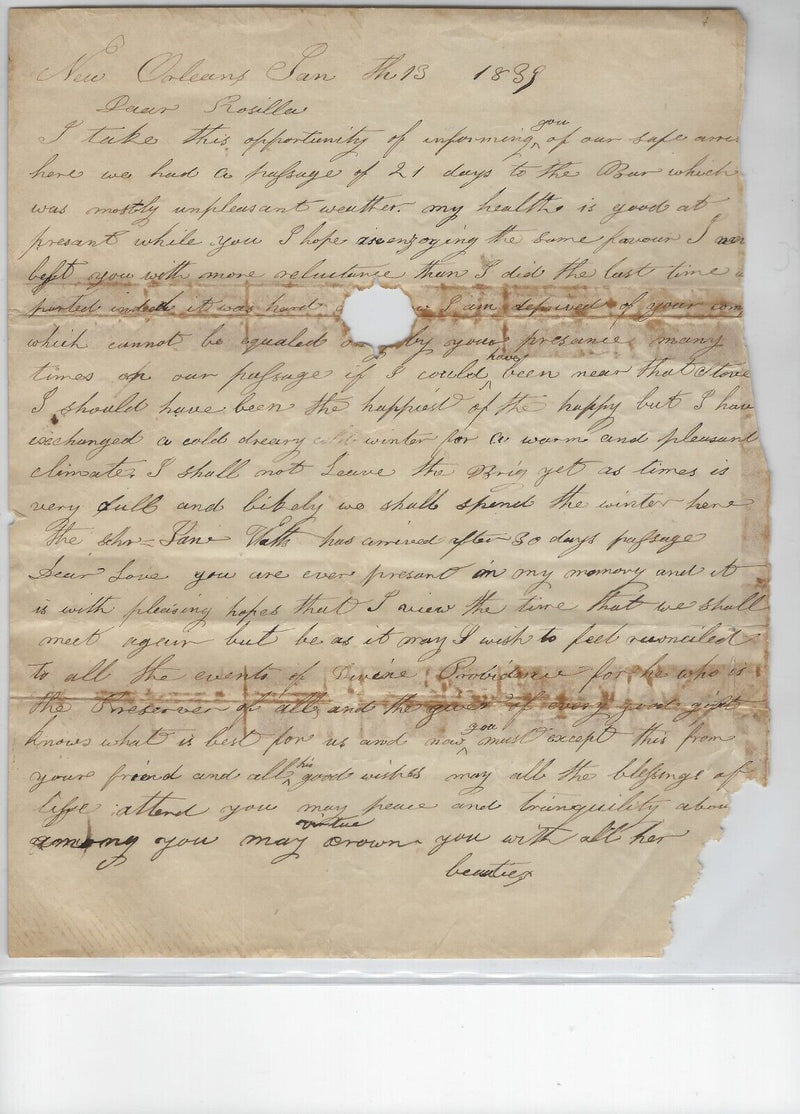 New Orleans Jan th 13 1839
Daar Rosilla
I take this opportunity of informing you of our safe arri
here we had a passage of 21 days to the Bar which
was mostly unpleasant weather. my health is good at
presant while you I hope is enjoying the same favour I
left you with more reluctance than I did the last time
parted indeed it was hard I am deprived of your com
which cannot be equaled by your presance many
times on our passage if I could have been near that stove
I should have been the happiest of the happy but I have
exchanged a cold dreary winter for a warm and pleasant
climate. I shall not Leave the Brig yet as times is
very dull and likely we shall spend the winter here
the schr Jane Watts has arrived after 30 days passage
Dear Love you are ever presant in my momory and it
is with pleasing hopes that I view the time that we shall
meet again but be as it may I wish to feel reconciled
to all the events of Divine Providence for he who is
the Preserver of all and the giver of every good gift
knows what is best for us and now you must except this from
your friend and all his good wishes may all the blessings of
life attend you may peace and tranquility aboun
among you may virtue crown you with all her
beauties